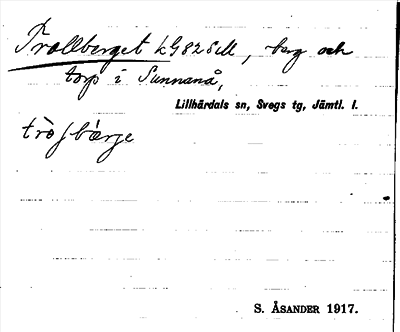 Trollberget kG82SM, berg och
torp i Sunnanå,
Lillhärdals sn, Svegs tg, Jämtl. l.
trò̀ſbærje
S. ÅSANDER 1917.